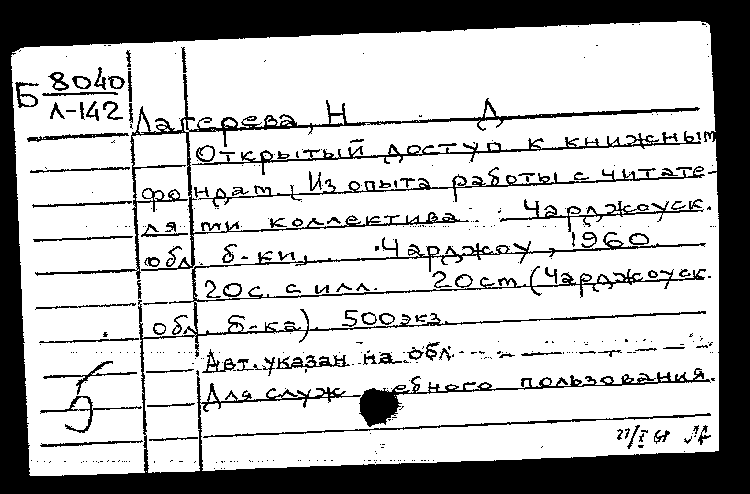 Б 8040
Л-142
Лагерева, Н Д
Открытый доступ к книжным
фондам. (Из опыта работы с читате-
лями коллектива Чарджоуск.
обл. б-ки, Чарджоу, 1960.
20с. с илл. 20см. (Чарджоуск.
обл. б-ка). 500экз.
Авт. указан на обл
Для служебного пользования.
5